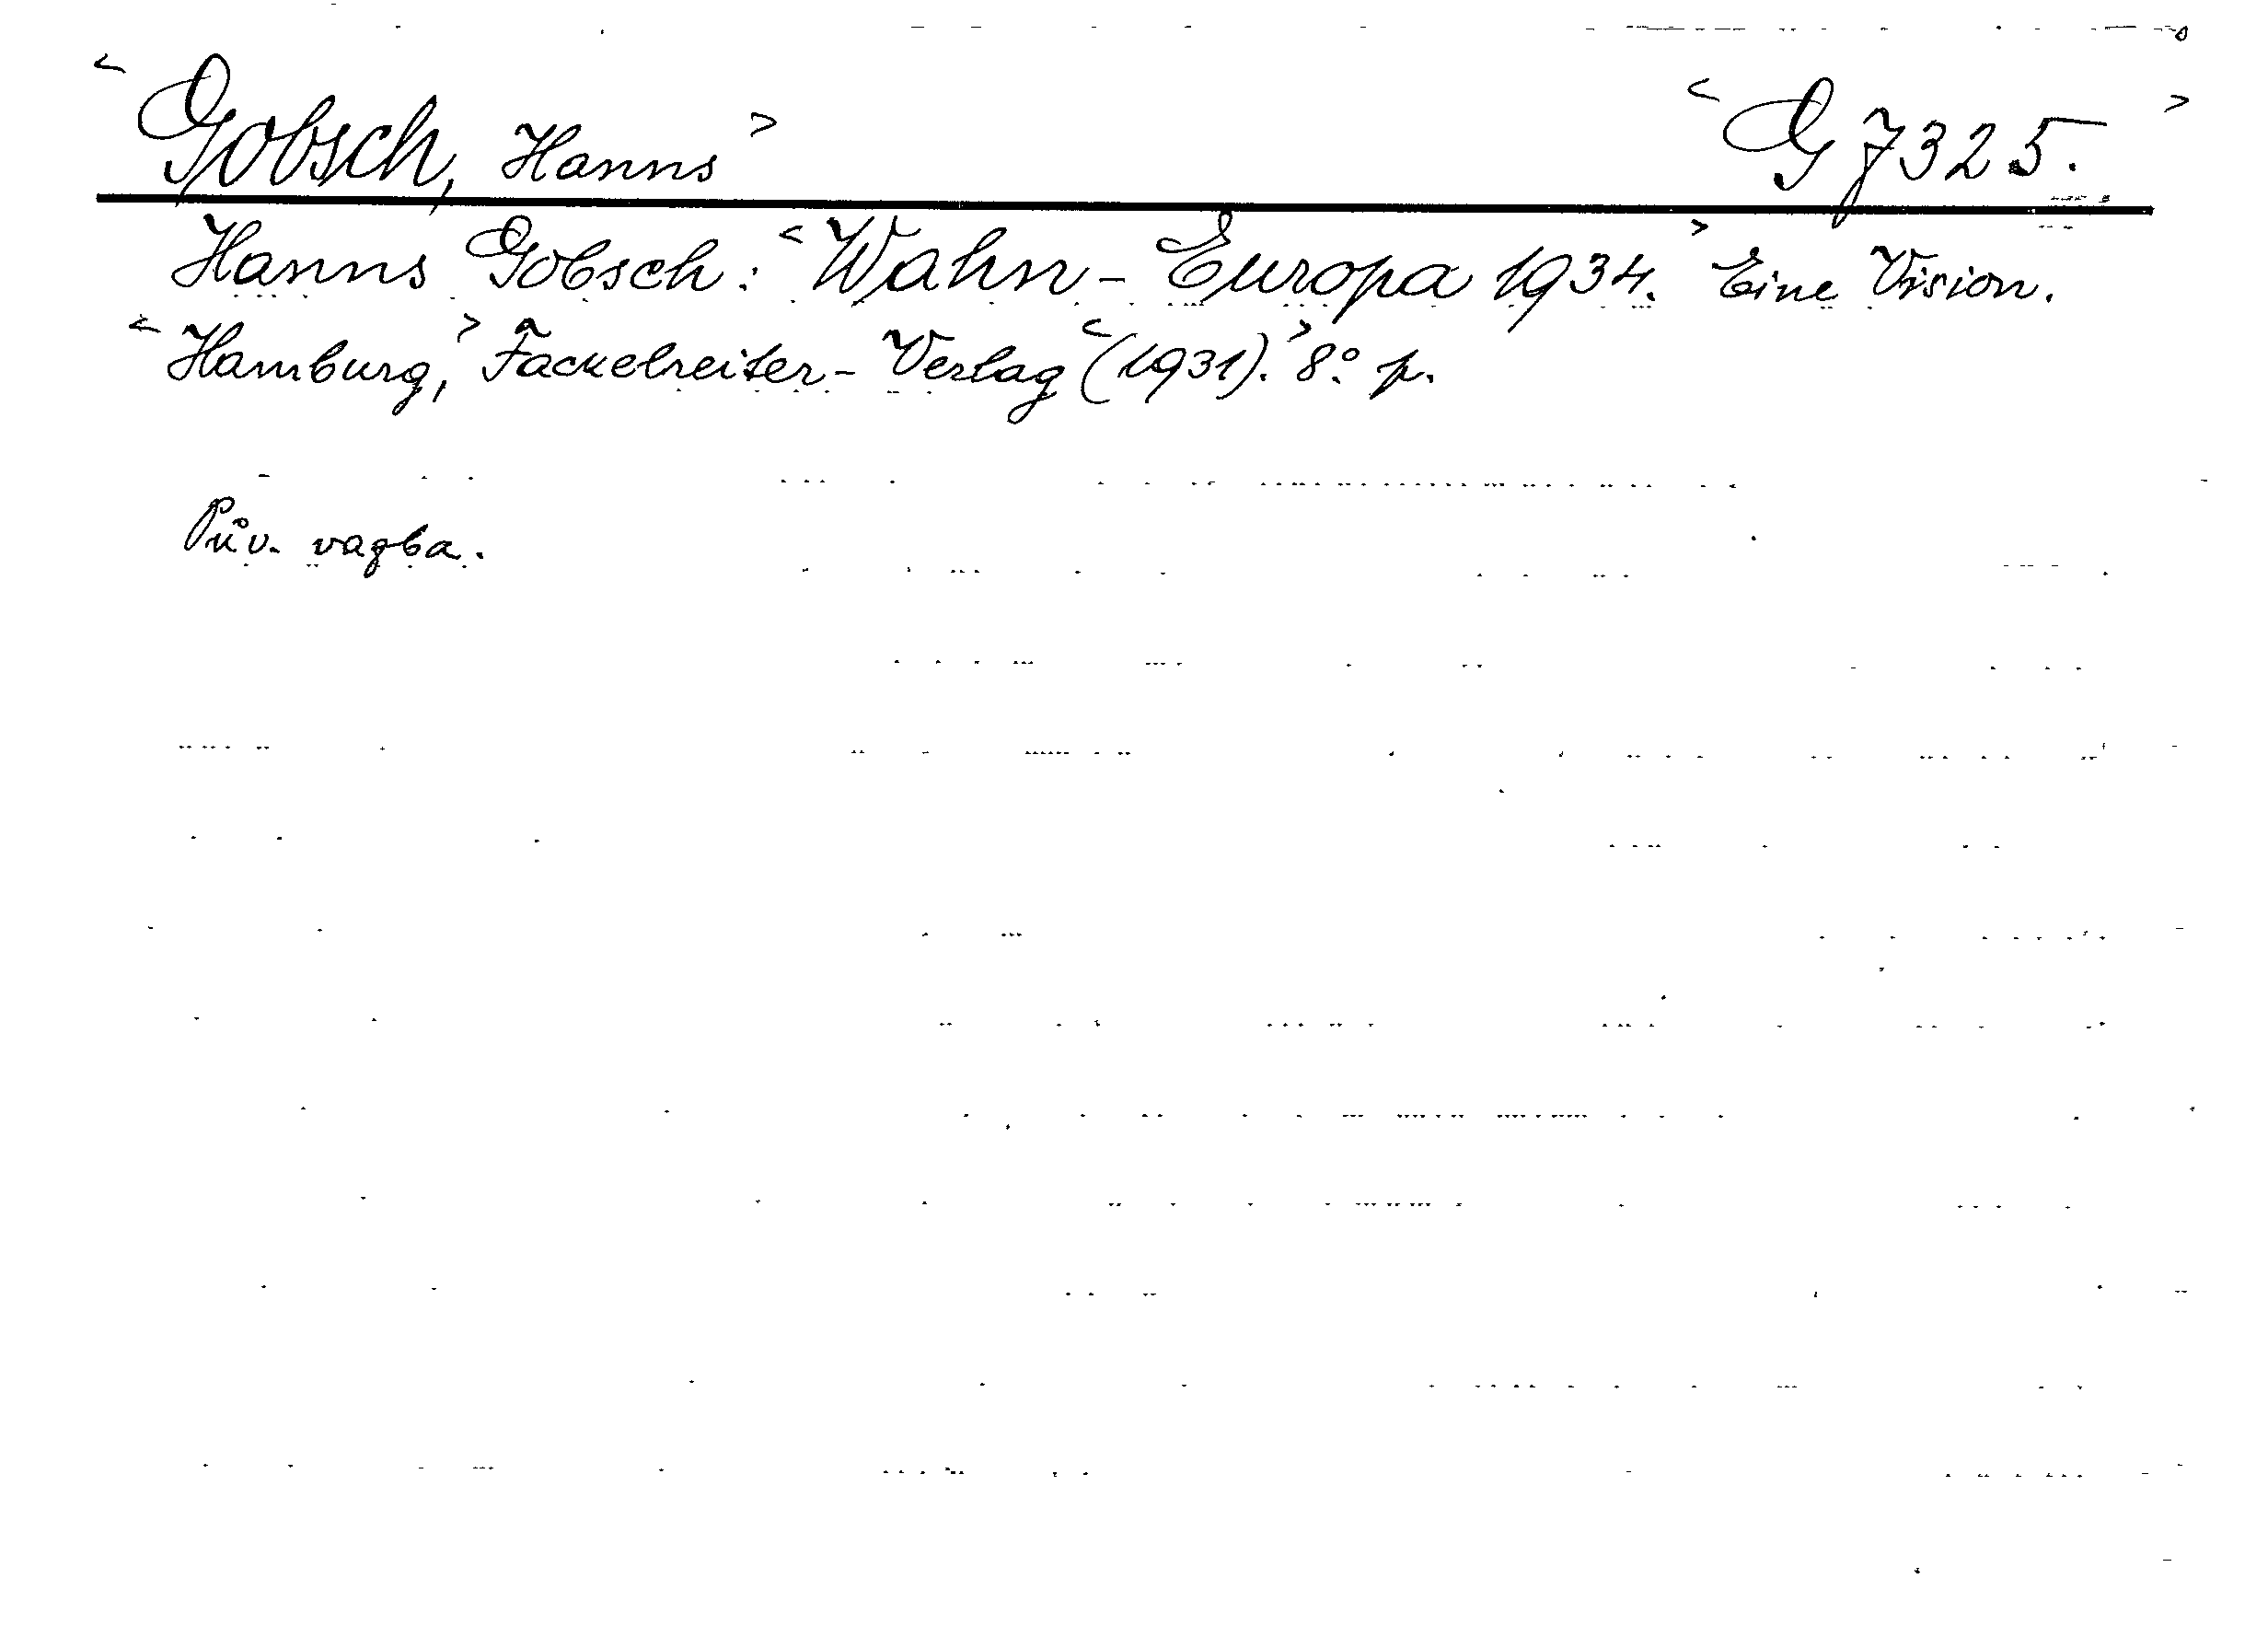 <Gobsch, Hanns> <G 7325.>
Hanns Gobsch: <Wahn - Europa 1934.> Eine Vision.
<Hamburg,> Fackelreiter - Verlag <(1931).> 8° p.
Pův. vazba.